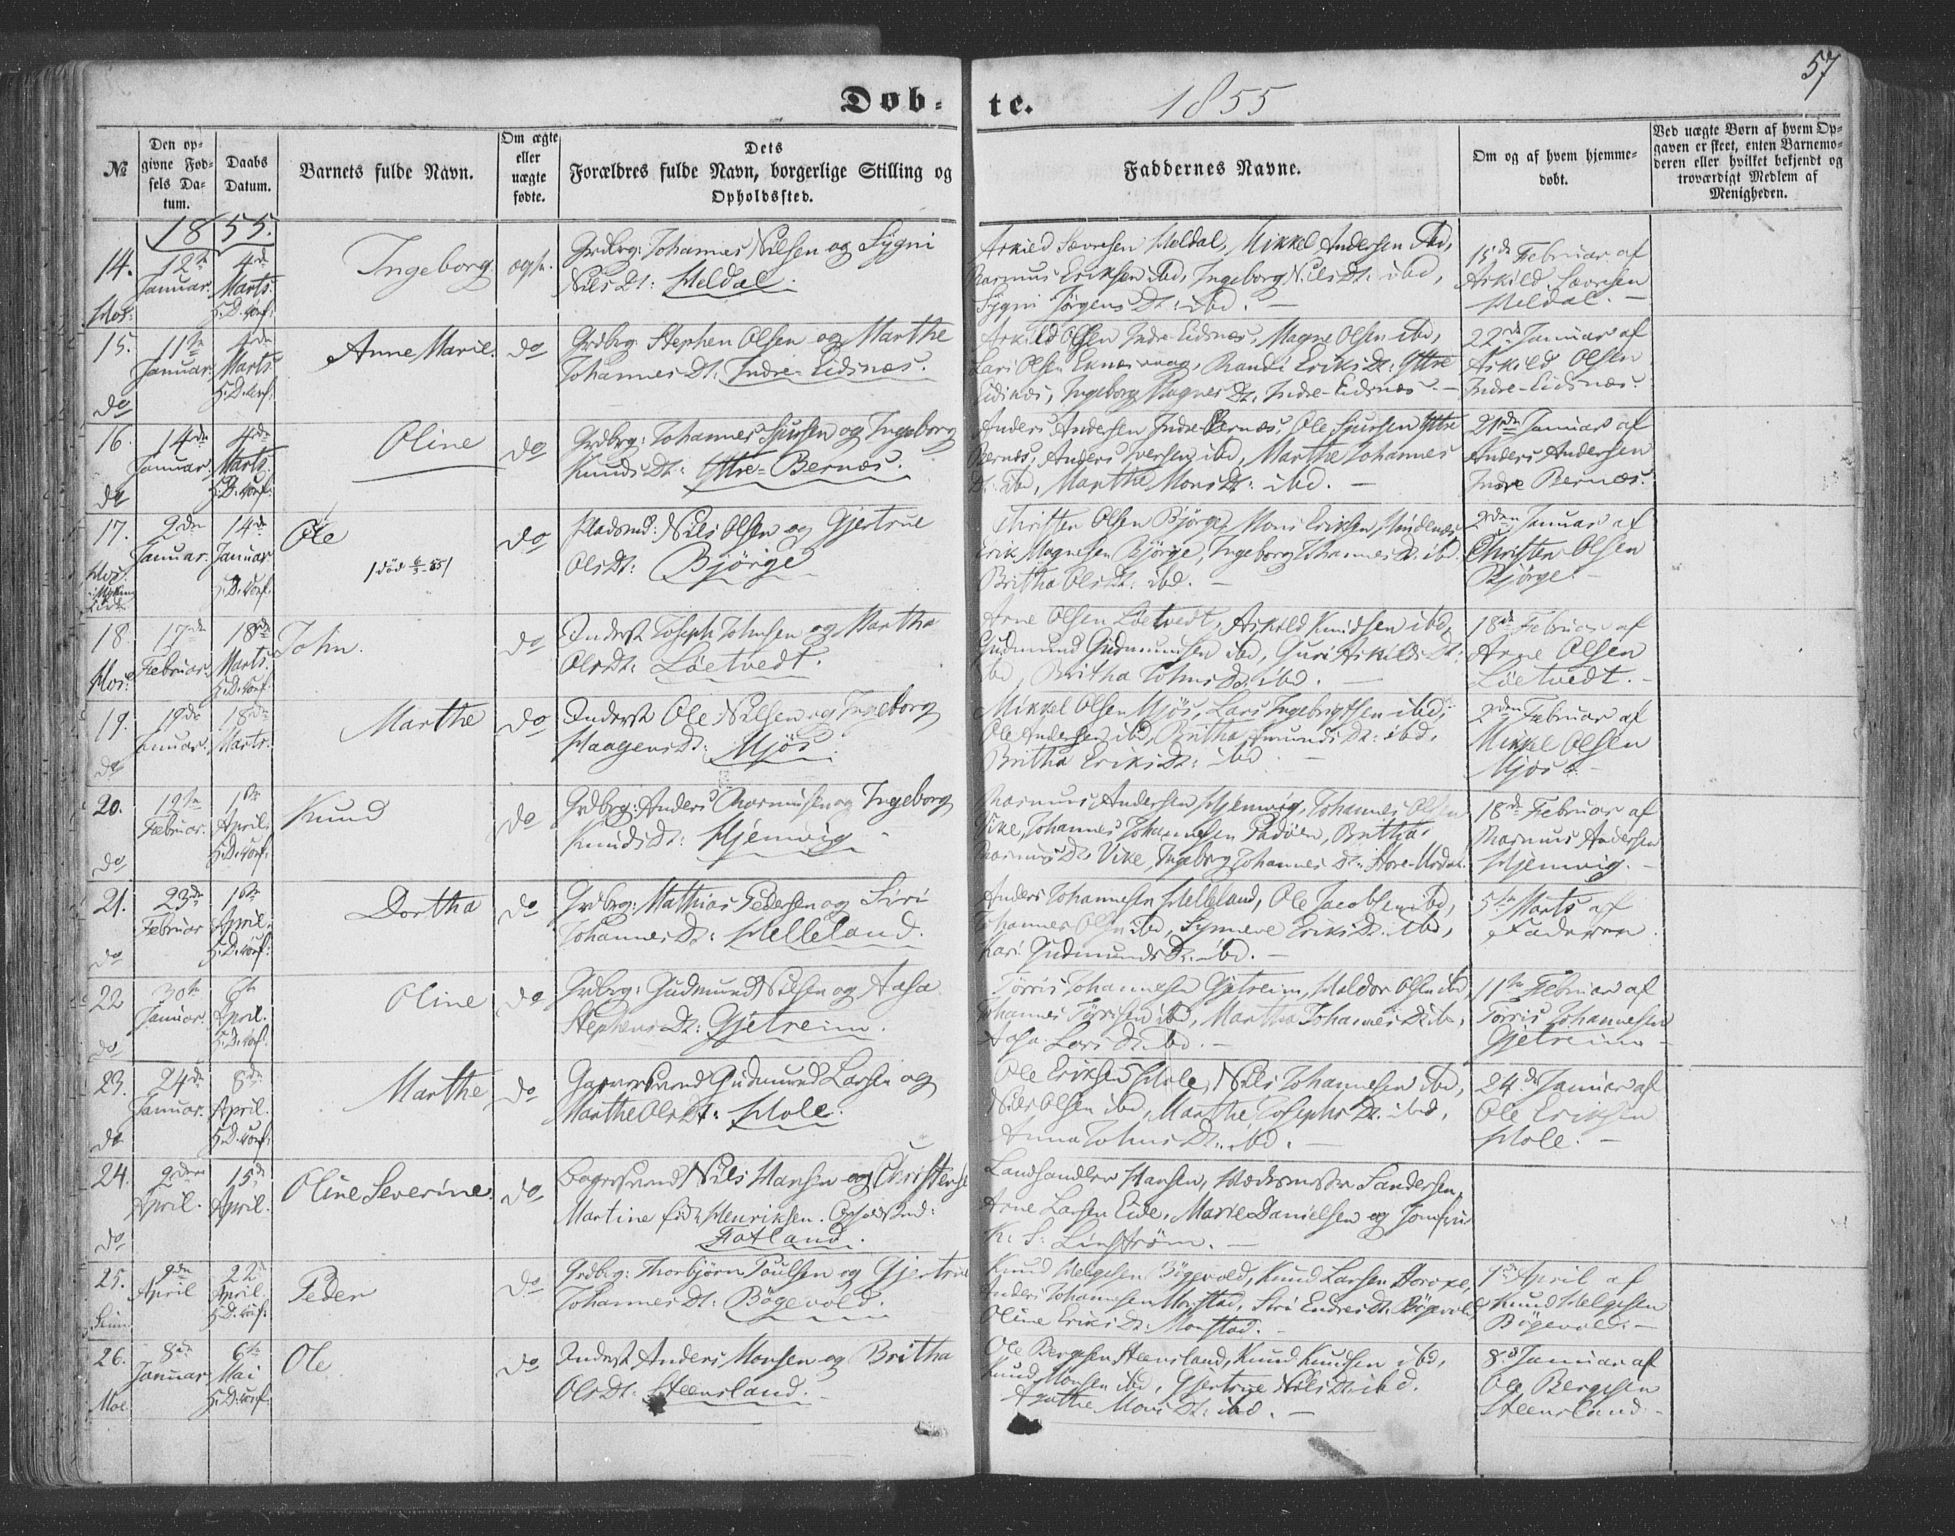 57
Døb-
te.
1855
№
Den op-
givne Fød-
sels Da-
tum.
Daabs
Datum.
Barnets fulde Navn.
Om ægte
eller
uægte
fødte.
Dets
Forældres fulde Navn, borgerlige Stilling og
Opholdssted.
Faddernes Navne.
Om og af hvem hjemme-
døbt.
Ved uægte Børn af hvem Op-
gaven er skeet, enten Barnemo-
deren eller hvilket bekjendt og
troværdigt Medlem af
Menigheden.
1855.
14.
12te
Januar.
4de
Marts.
Ingeborg
Grdbrg: Johannes Nilsen og Sygni
Nils Dt: Heldal.
Heldal, Mikkel Andersen ibd,
Rasmus Eriksen ibd, Ingeborg Nils Dt: ibd,
Sygni Jørgens Dt: ibd. —
15de Februar af
Arkild
Heldal. —
15.
do
11te
Januar.
4de
Marts.
Anne Marie.
do
Grdbrg: Stephen Olsen og Marthe
Johannes Dt: Indre-Eidsnæs.
Arkild Olsen Indre-Eidsnæs, Magne Olsen ibd,
Lars Olsen, Randi Eriks Dt: Yttre
Ingeborg Magnes Dt: Indre-Eidsnæs. —
22de Januar af
Arkild Olsen
Indre-Eidsnæs.
16.
do
14de
Januar.
4de
Marts.
Oline
do
Grdbrg: Johannes og Ingeborg
Knuds Dt: Yttre-Bernæs.
Anders Andersen Indre Bernæs, Ole Yttre
Bernæs, Anders Iversen ibd, Marthe Johannes
Dt: ibd, Marthe Mons Dt: ibd. —
21de Januar af
Anders Andersen
Indre Bernæs.
17.
2den
Januar.
14de
Januar.
Ole
/død 6/3 55/
do
Pladsmd: Nils Olsen og Gjertrue
Ols Dt: Bjørge
Christen Olsen Bjørge, Mons Eriksen
Erik Magnesen Bjørge, Ingeborg Johannes Dt: ibd.
Britha Ols Dt: ibd. —
2den Januar af
Christen Olsen
Bjørge. —
18.
17de
Februar.
18de
Marts.
John.
do
Inderst Joseph Johnsen og Martha
Ols Dt: Løetvedt.
Arne Olsen Løetvedt, Arkild Knudsen ibd,
Gudmund Gudmundsen ibd, Guri Arkilds Dt:
ibd, Britha Johns Dt: ibd. —
18de Februar af
Arne Olsen
Løetvedt. —
19.
do
19de
Januar.
18de
Marts.
Marthe
do
Inderst Ole Nilsen og Ingeborg
Haagens Dt: Mjøs.
Mikkel Olsen Mjøs, Lars Ingebrigtsen ibd,
Ole Andersen ibd, Britha Amunds Dt: ibd.
Britha Eriks Dt: ibd —
2den Februar af
Mikkel Olsen
Mjøs. —
20.
do
12te
Februar.
1ste
April.
Knud
do
Grdbrg: Anders Rasmusen og Ingeborg
Knuds Dt: Hjemvig
Rasmus Andersen Hjemvig, Johannes Olsen
Vike, Johannes Johannesen, Britha
Rasmus Dt: Vike, Ingeborg Johannes Dt:
18de Februar af
Rasmus Andersen
Hjemvig. —
21.
do
23de
Februar
1ste
April.
Dortha
do
Grdbrg: Mathias Pedersen og Siri
Johannes Dt: Helleland.
Anders Johannesen Helleland, Ole Jacobsen ibd,
Johannes Olsen ibd, Synneve Eriks Dt: ibd,
Kari Gudmunds Dt: ibd. —
5te Marts af
Faderen.
22
do
30te
Januar.
6te
April.
Oline
do
Grdbrg: Gudmund Nilsen og Aasa
Stephens Dt: Gjetreim.
Torris Johannesen Gjetreim, Haldor Olsen ibd,
Johannes ibd, Martha Johannes Dt: ibd,
Lars Dt: ibd. —
11te Februar af
Torris Johannesen
Gjetreim —
23.
do
24de
Januar.
8de
April.
Marthe
do
Gudmund Larsen og
Marthe Ols Dt: Hole.
Ole Eriksen Hole, Nils Johannesen ibd,
Nils Olsen ibd, Marthe Josephs Dt: ibd,
Anna Johns Dt: ibd. —
24de Januar af
Ole Eriksen
Hole. —
24.
do
2den
April.
15de
April.
Oline Severine.
do
Nils Hansen og
Martine født Henriksen. Opholdsted:
Fatland.
Landhandler Hansen, Sandersen,
Arne Larsen Eide, Marie Danielsen og Jomfru
K. S. Lindstrøm. —
25.
April
22de
April.
Peder
do
Grdbrg: Thorbjørn Poulsen og Gjertrue
Johannes Dt: Bøgevold.
Knud Helgesen Bøgevold, Knud Larsen
Anders Johannesen, Siri Endres Dt: Bøgevold,
Oline Eriks Dt:
April af
Knud Helgesen
Bøgevold. —
26.
8de
Januar.
6te
Mai
Ole
do
Inderst Anders Monsen og Britha
Ols Dt: Steensland.
Ole Bergesen Steensland, Knud Knudsen ibd,
Knud Monsen ibd, Gjertrue Nils Dt: ibd.
Agathe Mons Dt: ibd. —
8de Januar af
Ole Bergesen
Steensland. —